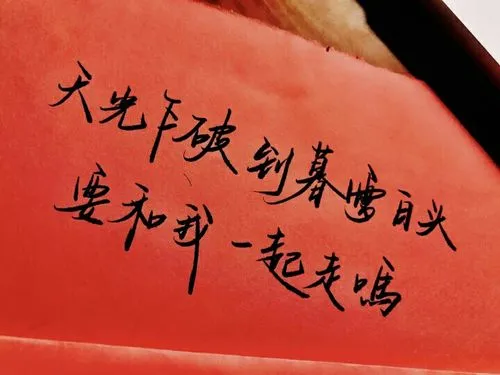 天光乍破到暮雪白头
要和我一起走嗎